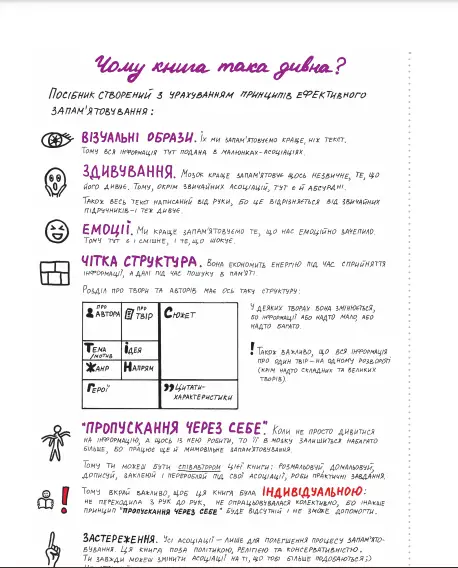 Чому книга така дивна?
Посібник створений з урахуванням принципів ефективного
запам'ятовування:
ВІЗУАЛЬНІ ОБРАЗИ. Їх ми запам'ятовуємо краще, ніж текст.
Тому вся інформація тут подана в малюнках-асоціаціях.
ЗДИВУВАННЯ. Мозок краще запам'ятовує щось незвичне, те, що
його дивує. Тому, окрім звичайних асоціацій, тут є й абсурдні.
Також весь текст написаний від руки, бо це відрізняється від звичайних
підручників - і теж дивує.
ЕМОЦІЇ. Ми краще запам'ятовуємо те, що нас емоційно зачепило.
Тому тут є і смішне, і те, що шокує.
ЧІТКА СТРУКТУРА. Вона економить енергію під час сприйняття
інформації, а далі під час пошуку в пам'яті.
Розділ про твори та авторів має ось таку структуру:
про автора
про твір
Сюжет
Тема/мотив
Ідея
Жанр
Напрям
Герої
Цитати-характеристики
У деяких творах вона змінюється,
бо інформації або надто мало, або
надто багато.
! Також важливо, що вся інформація
про один твір - на одному розвороті
(крім надто складних та великих
творів).
"ПРОПУСКАННЯ ЧЕРЕЗ СЕБЕ". Коли не просто дивитися
на інформацію, а щось із нею робити, то її в мозку залишиться набагато
більше, бо працює ще й мимовільне запам'ятовування.
Тому ти можеш бути співавтором цієї книги: розмальовуй, домальовуй,
дописуй, заклеюй і переробляй під свої асоціації, роби практичні завдання.
! Тому вкрай важливо, щоб ця книга була ІНДИВІДУАЛЬНОЮ:
не переходила з рук до рук, не опрацьовувалася колективно, бо інакше
принцип "пропускання через себе" буде відсутній і не зможе допомогти.
ЗАСТЕРЕЖЕННЯ. Усі асоціації - лише для полегшення процесу запам'ято-
вування. Ця книга поза політикою, релігією та консервативністю.
Ти завжди можеш змінити асоціації на ті, що тобі більше подобаються ;)